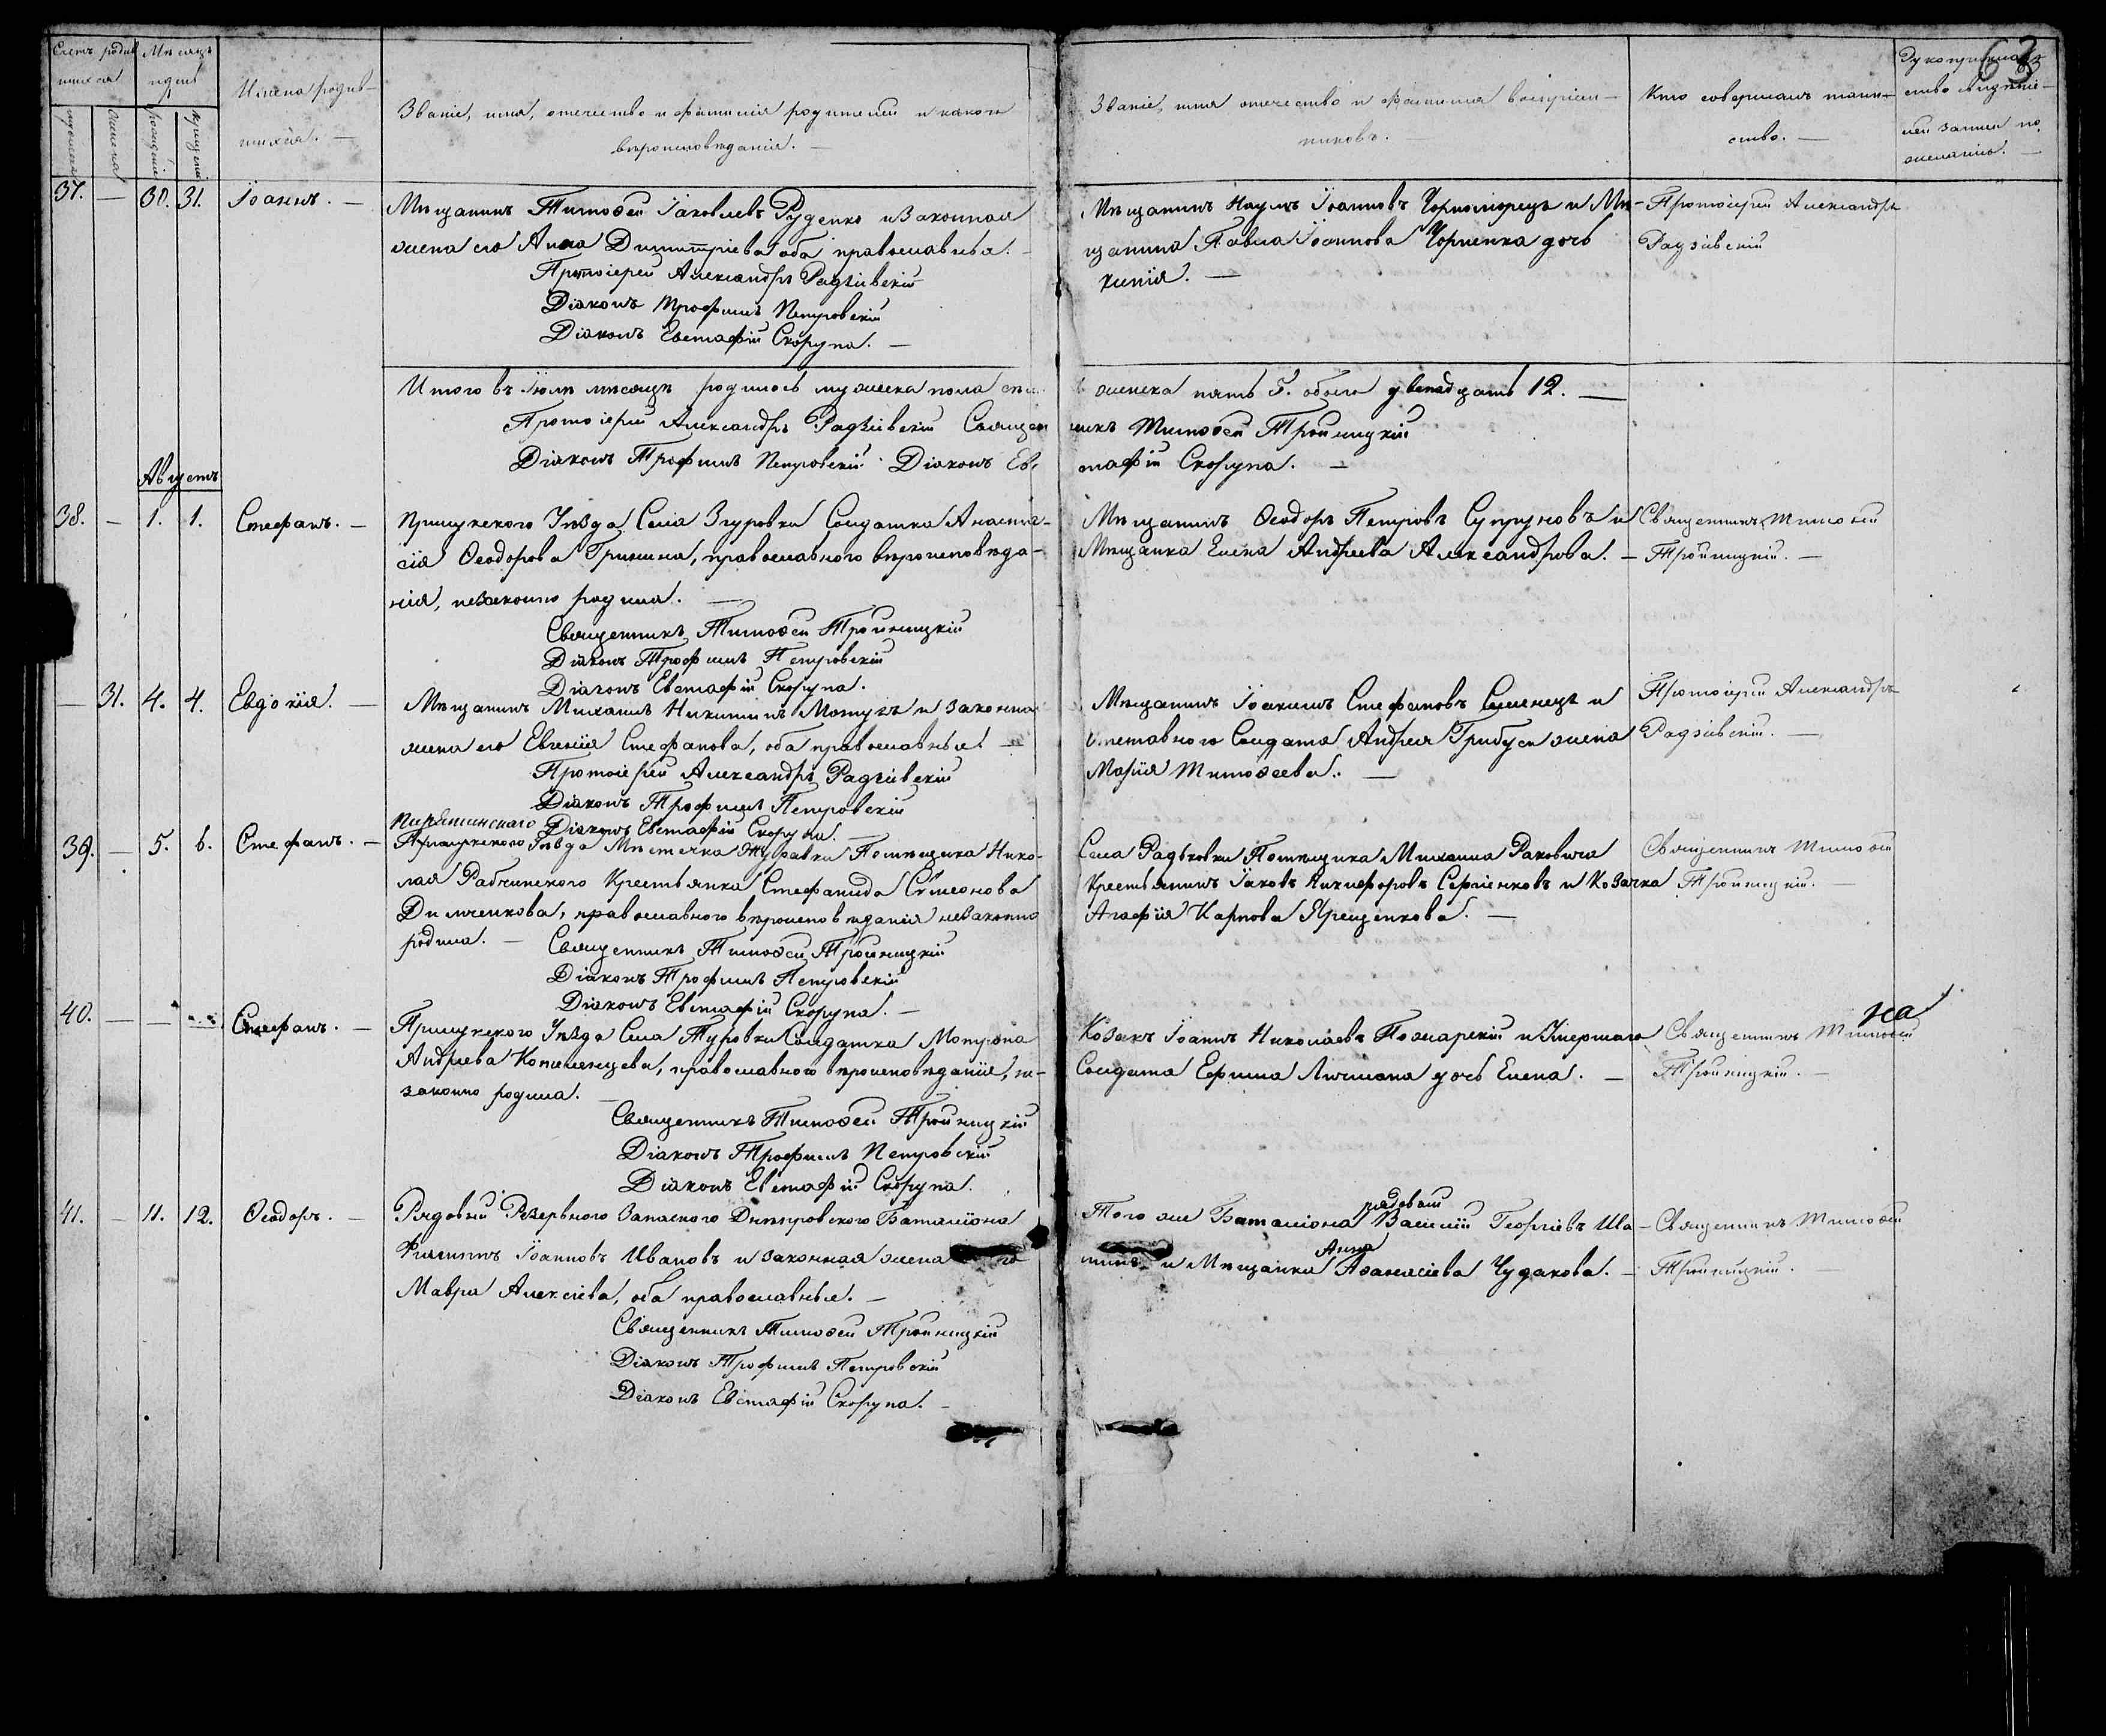 63
Счетъ родив
шихся
Мѣсяцъ
и день
Имена родив-
шихся. —
Званіе, имя, отечество и фамилія родителей и какого
вѣроисповѣданія. —
Званіе, имя отечество и фамилія воспріем-
никовъ. —
Кто совершалъ таин-
ство. —
Рукоприклад
ство свидѣте-
лей записи по
желанію. —
рожденія
крещенія
37. — 30. 31. Іоаннъ. —
Мѣщанинъ Тимоѳей Іаковлевъ Руденко и Законная
жена его Анна Димитріева оба православные. —
Протоіерей Александръ Радзіевскій
Діаконъ Трофимъ Петровскій
Діаконъ Евстафій Скорупа. —
Мѣщанинъ Наумъ Іоанновъ Чорноморецъ и Мѣ-
щанина Павла Іоаннова Чорненка дочь
Ксенія. —
Протоіерей Александръ
Радзіевскій
Итого въ Іюлѣ мѣсяцѣ родилось мужеска пола
женска пять 5. обоего двенадцать 12. —
Протоіерей Александръ Радзіевскій Священ
никъ Тимоѳей Тройницкій
Діаконъ Трофимъ Петровскій Діаконъ Евс
тафій Скорупа. —
Августъ
38. — 1. 1. Стефанъ. —
Прилукского Уѣзда Села Згуровки Солдатка Анаста-
сія Ѳеодорова Гришина, православного вѣроисповѣда-
нія, незаконно родила. —
Священникъ Тимоѳей Тройницкій
Діаконъ Трофимъ Петровскій
Діаконъ Евстафій Скорупа.
Мѣщанинъ Ѳеодоръ Петровъ Супруновъ и
Мѣщанка Елена Андреева Александрова. —
Священникъ Тимоѳей
Тройницкій. —
— 31. 4. 4. Евдокія. —
Мѣщанинъ Михаилъ Никитинъ Мотузъ и законна
жена его Евгенія Стефанова, оба православные. —
Протоіерей Александръ Радзіевскій
Діаконъ Трофимъ Петровскій
Діаконъ Евстафій Скорупа.
Мѣщанинъ Іоакимъ Стефановъ Семенецъ и
Отставного Солдата Андрея Грибуся жена
Марія Тимоѳеева. —
Протоіерей Александръ
Радзіевскій. —
39. — 5. 6. Стефанъ. —
Пирятинского
Прилукского Уѣзда Мѣстечка Журавки Помѣщика Нико-
лая Рабчинского Крестьянка Стефанида Симеонова
Димченкова, православного вѣроисповѣданія незаконно
родила. — Священникъ Тимоѳей Тройницкій
Діаконъ Трофимъ Петровскій
Діаконъ Евстафій Скорупа. —
Села Радьковки Помѣщика Михаила Раковича
Крестьянинъ Іаковъ Никифоровъ Сергіенковъ и Козачка
Агафія Карпова Ярещенкова. —
Священникъ Тимоѳей
Тройницкій. —
40. — — Стефанъ. —
Прилукского Уѣзда Села Туровки Солдатка Мотрона
Андреева Коломійцева, православного вѣроисповѣданія, не-
законно родила. —
Священникъ Тимоѳей Тройницкій
Діаконъ Трофимъ Петровскій
Діаконъ Евстафій Скорупа.
Козакъ Іоаннъ Николаевъ Пожарскій и Умершаго
Солдата Ефима Личмана дочь Елена. —
на
Священникъ Тимоѳей
Тройницкій. —
41. — 11. 12. Ѳеодоръ. —
Рядовый Резервного Запасного Днѣпровского Баталіона
Филиппъ Іоанновъ Ивановъ и законная жена его
Мавра Алексіева, оба православные. —
Священникъ Тимоѳей Тройницкій
Діаконъ Трофимъ Петровскій
Діаконъ Евстафій Скорупа. —
рядовый
Того же Баталіона Василій Георгіевъ Ива-
Анна
нинъ и Мѣщанка Аѳанасіева Чудакова. —
Священникъ Тимоѳей
Тройницкій. —